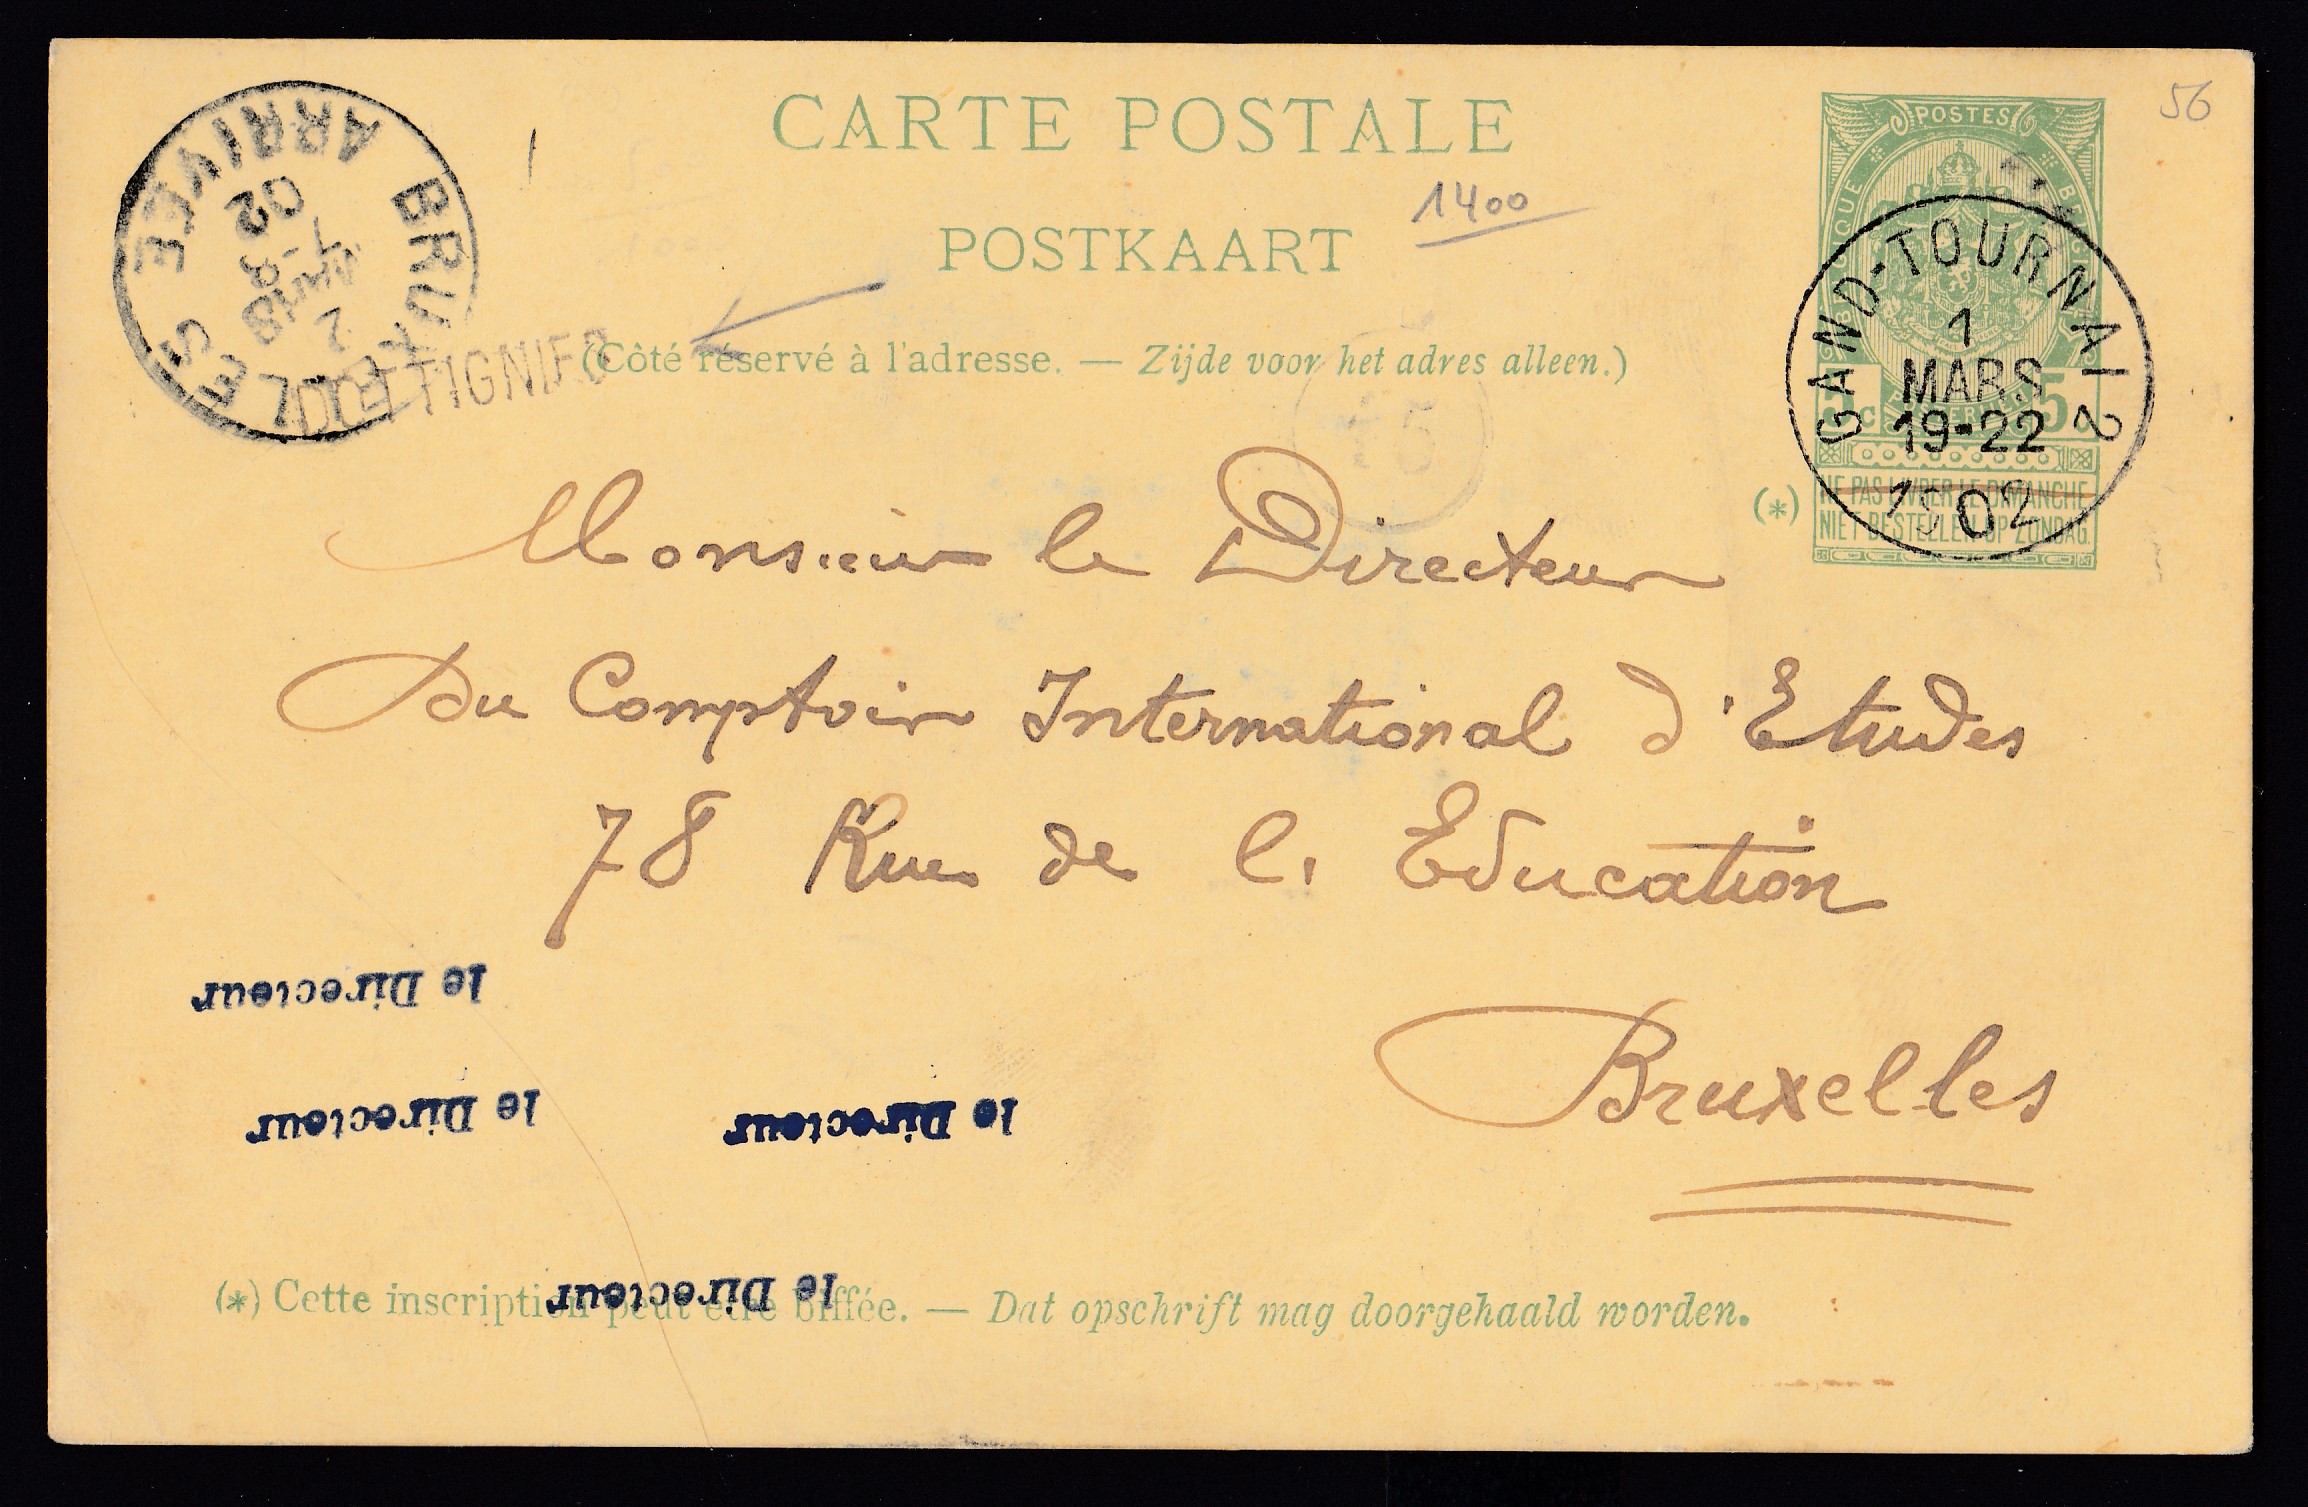 CARTE POSTALE
POSTKAART
(Côté réservé à l'adresse. — Zijde voor het adres alleen.)
1400
56
ARRIVEE
02
2
DOTTIGNIES
POSTES
GAND-TOURNAI 2
1
MARS
19-22
1902
5
(*) NE PAS LIVRER LE DIMANCHE
NIET BESTELLEN OP ZONDAG.
Monsieur le Directeur
du Comptoir International d'Etudes
78 Rue de l' Education
Bruxelles
le Directeur
le Directeur
le Directeur
le Directeur
(*) Cette inscription peut être biffée. — Dat opschrift mag doorgehaald worden.